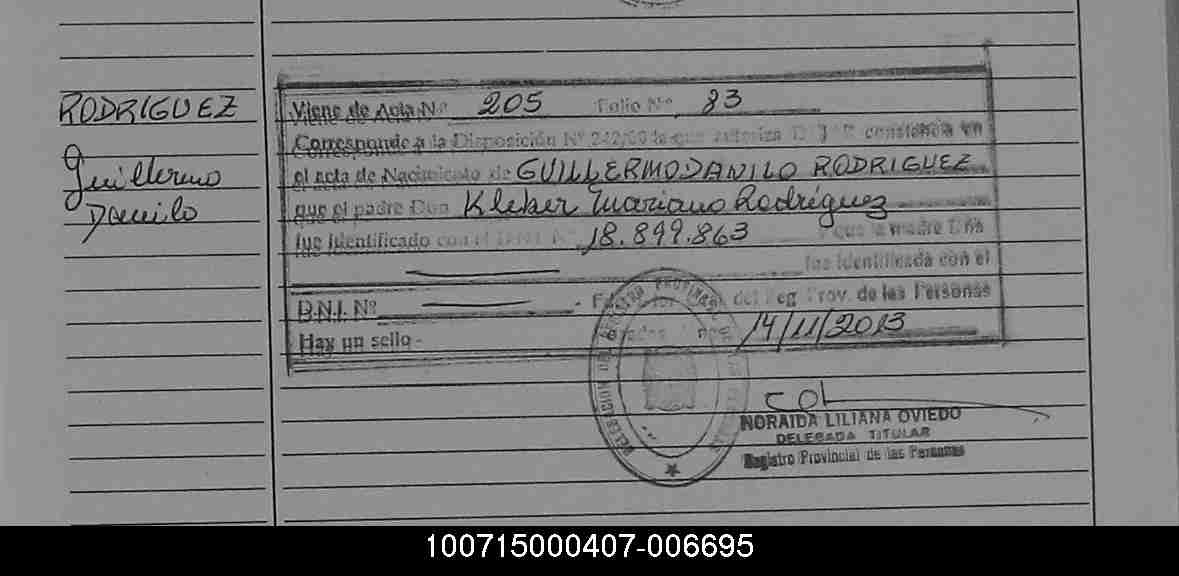 RODRIGUEZ
Guillermo
Danilo
Viene de Acta Nº 205 Folio Nº 83
Corresponde a la Disposición Nº 242/00 la que autoriza constancia en
el acta de Nacimiento de GUILLERMO DANILO RODRIGUEZ
que el padre Don Kleber Mariano Rodríguez
fue identificado con el D.N.I. Nº 18.899.863 y que la madre Dña
fue identificada con el
D.N.I. Nº - del Reg Prov. de las Personas
Hay un sello - 14/11/2013
DELEGACION DEL REGISTRO PROVINCIAL DE LAS PERSONAS
NORAIDA LILIANA OVIEDO
DELEGADA TITULAR
Registro Provincial de las Personas
100715000407-006695